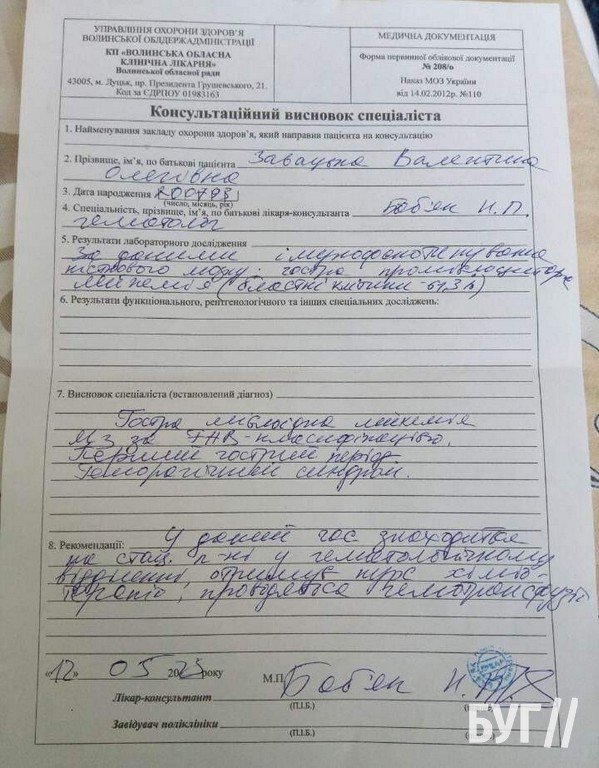 УПРАВЛІННЯ ОХОРОНИ ЗДОРОВ'Я
ВОЛИНСЬКОЇ ОБЛДЕРЖАДМІНІСТРАЦІЇ
КП «ВОЛИНСЬКА ОБЛАСНА
КЛІНІЧНА ЛІКАРНЯ»
Волинської обласної ради
43005, м. Луцьк, пр. Президента Грушевського, 21.
Код за ЄДРПОУ 01983163
МЕДИЧНА ДОКУМЕНТАЦІЯ
Форма первинної облікової документації
№ 208/о
Наказ МОЗ України
від 14.02.2012р. №110
Консультаційний висновок спеціаліста
1. Найменування закладу охорони здоров'я, який направив пацієнта на консультацію
2. Прізвище, ім'я, по батькові пацієнта Завацька Валентина
Олегівна
3. Дата народження
(число, місяць, рік)
4. Спеціальність, прізвище, ім'я, по батькові лікаря-консультанта Боб'як Н.П.
гематолог
5. Результати лабораторного дослідження
За даними імунофенотипування
кісткового мозку: гостра
лейкемія (бластні клітини -
6. Результати функціонального, рентгенологічного та інших спеціальних досліджень:
7. Висновок спеціаліста (встановлений діагноз)
Гостра мієлоїдна лейкемія
М3 за FAB-класифікацією.
Перший гострий період
Геморагічний синдром.
8. Рекомендації: У даний час знаходиться
на стац. л-ні у гематологічному
відділенні, отримує курс хіміо-
терапії, проводяться гемотрансфузії
«12» 05 2023 року
М.П. Боб'як Н.П.
Лікар-консультант
(П.І.Б.)
Завідувач поліклініки
(П.І.Б.)
БУГ//